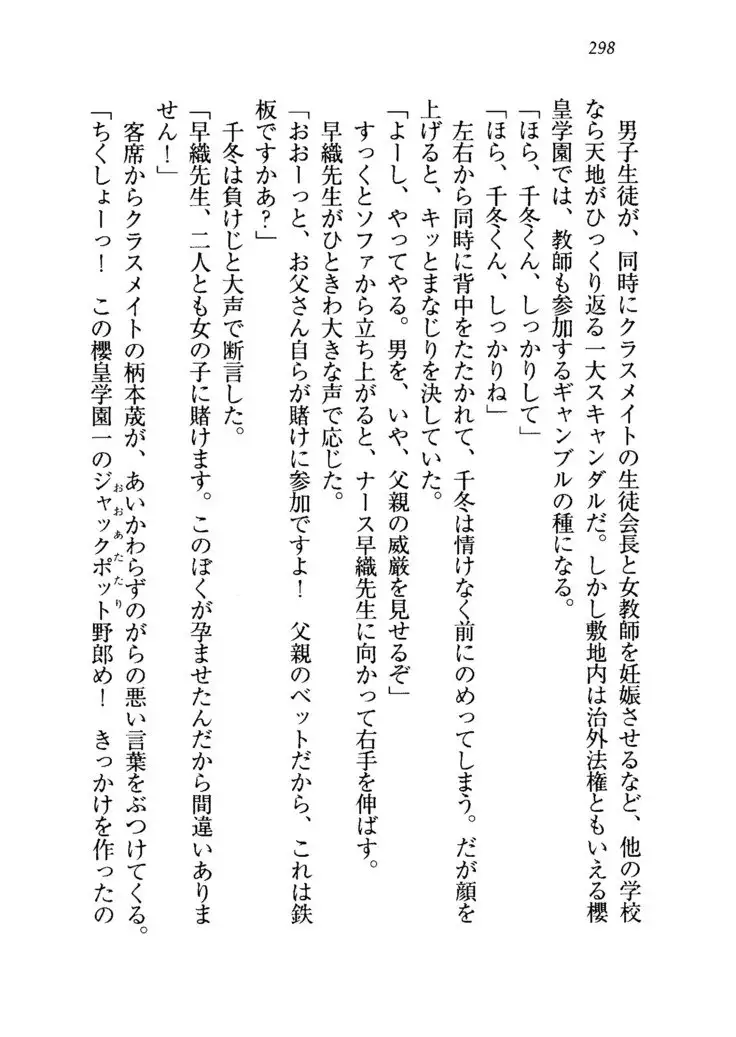 298
男子生徒が、同時にクラスメイトの生徒会長と女教師を妊娠させるなど、他の学校
なら天地がひっくり返る一大スキャンダルだ。しかし敷地内は治外法権ともいえる櫻
皇学園では、教師も参加するギャンブルの種になる。
「ほら、千冬くん、しっかりして」
「ほら、千冬くん、しっかりね」
左右から同時に背中をたたかれて、千冬は情けなく前にのめってしまう。だが顔を
上げると、キッとまなじりを決していた。
「よーし、やってやる。男を、いや、父親の威厳を見せるぞ」
すっくとソファから立ち上がると、ナース早織先生に向かって右手を伸ばす。
早織先生がひときわ大きな声で応じた。
「おおーっと、お父さん自らが賭けに参加ですよ！　父親のベットだから、これは鉄
板ですかあ？」
千冬は負けじと大声で断言した。
「早織先生、二人とも女の子に賭けます。このぼくが孕ませたんだから間違いありま
せん！」
客席からクラスメイトの柄本蔵が、あいかわらずのがらの悪い言葉をぶつけてくる。
「ちくしょーっ！　この櫻皇学園一のジャックポット野郎め！　きっかけを作ったの
おおあたり